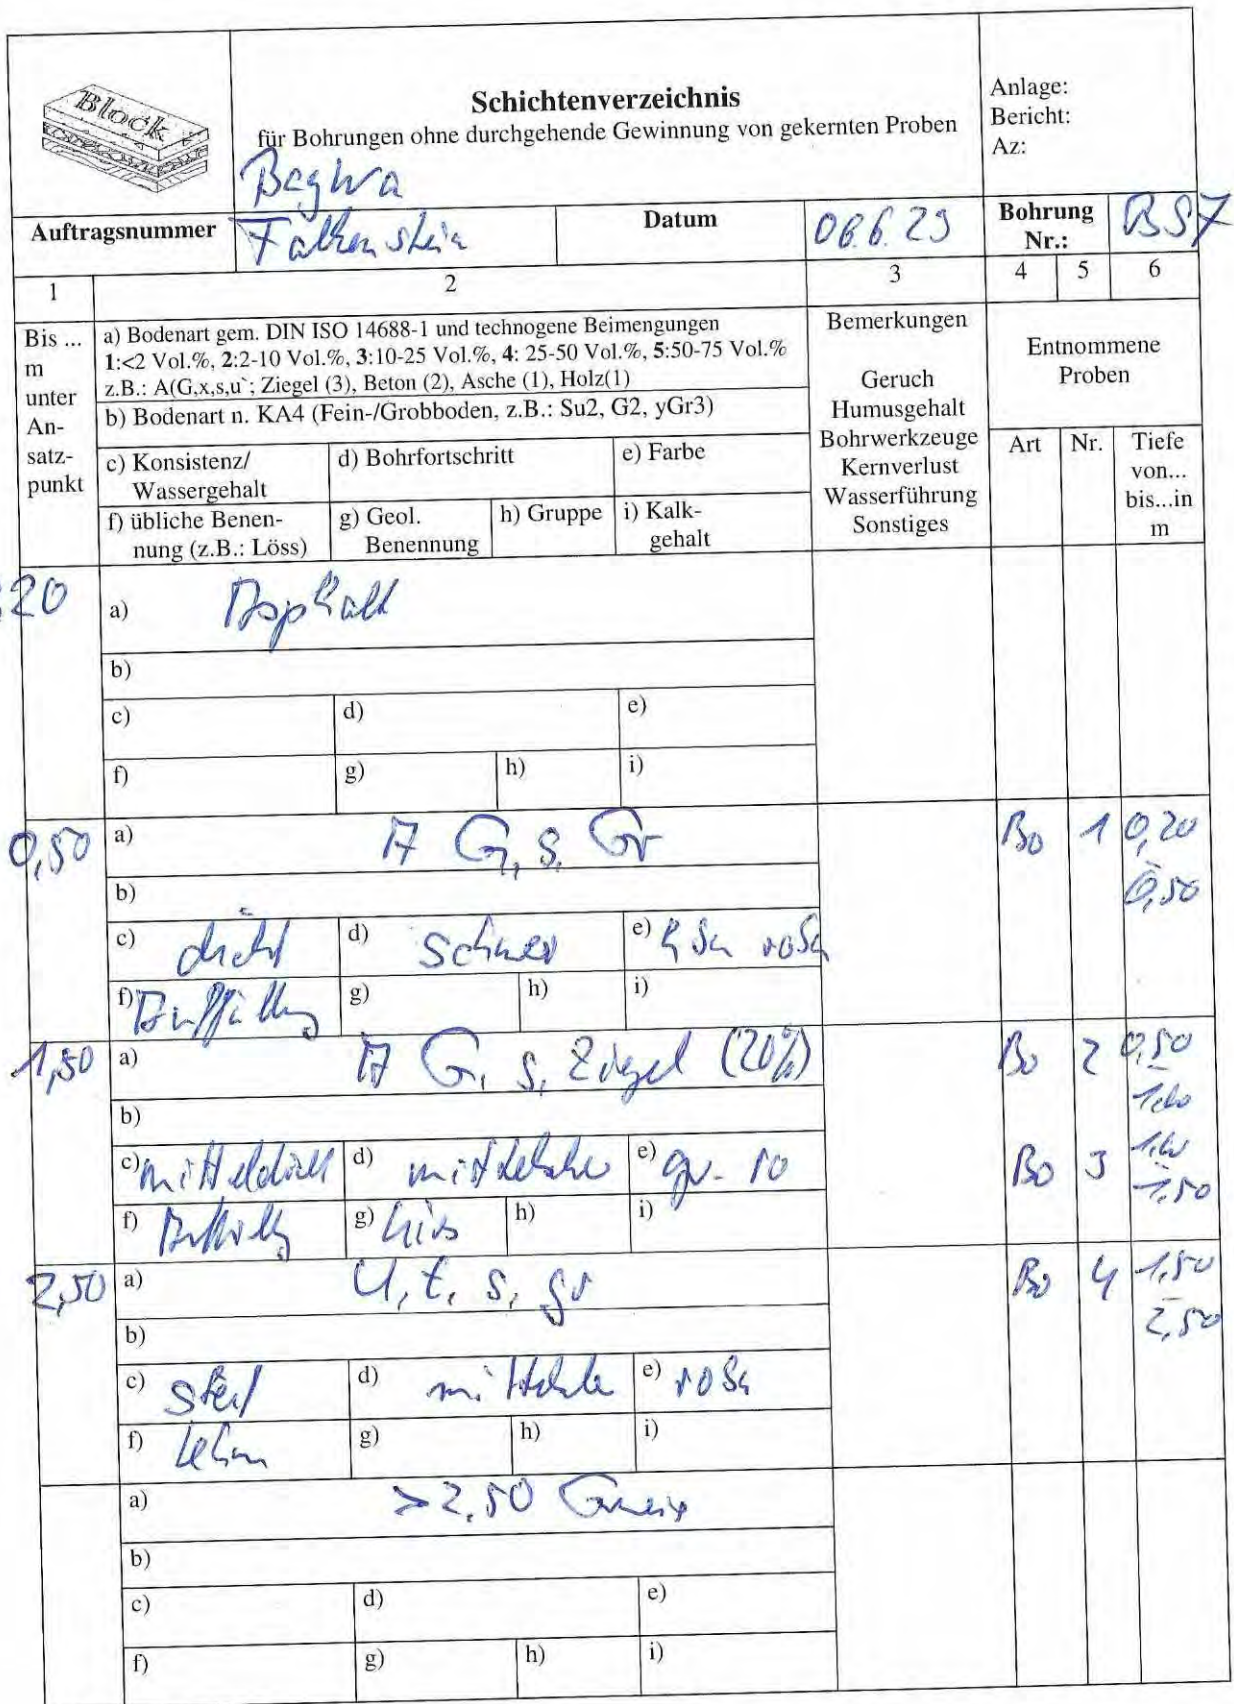 Block
Schichtenverzeichnis
für Bohrungen ohne durchgehende Gewinnung von gekernten Proben
Anlage:
Bericht:
Az:
Auftragsnummer
Falkenstein
Datum
Bohrung
Nr.:
BS7
1
2
3
4
5
6
Bis ...
m
unter
An-
satz-
punkt
a) Bodenart gem. DIN ISO 14688-1 und technogene Beimengungen
1:<2 Vol.%, 2:2-10 Vol.%, 3:10-25 Vol.%, 4: 25-50 Vol.%, 5:50-75 Vol.%
z.B.: A(G,x,s,u`; Ziegel (3), Beton (2), Asche (1), Holz(1)
b) Bodenart n. KA4 (Fein-/Grobboden, z.B.: Su2, G2, yGr3)
c) Konsistenz/
Wassergehalt
d) Bohrfortschritt
e) Farbe
f) übliche Benen-
nung (z.B.: Löss)
g) Geol.
Benennung
h) Gruppe
i) Kalk-
gehalt
Bemerkungen
Geruch
Humusgehalt
Bohrwerkzeuge
Kernverlust
Wasserführung
Sonstiges
Entnommene
Proben
Art
Nr.
Tiefe
von...
bis...in
m
20
a) Asphalt
b)
c)
d)
e)
f)
g)
h)
i)
0,50
a) A G, s, Gr
Bo 1 0,20
- 0,50
b)
c) dicht
d) schwer
e) rosa
f) Auffüllung
g)
h)
i)
1,50
a) A G, s, Ziegel (20%)
Bo 2 0,50
- 1,00
b)
c) mitteldicht
d) mittelschw
e) gr - ro
Bo 3 1,00
- 1,50
f) Auffüllg
g)
h)
i)
2,50
a) U, t, s, gr
Bo 4 1,50
- 2,50
b)
c) steif
d) mittelschw
e) rosa
f) Lehm
g)
h)
i)
a) >2,50 Gneis
b)
c)
d)
e)
f)
g)
h)
i)